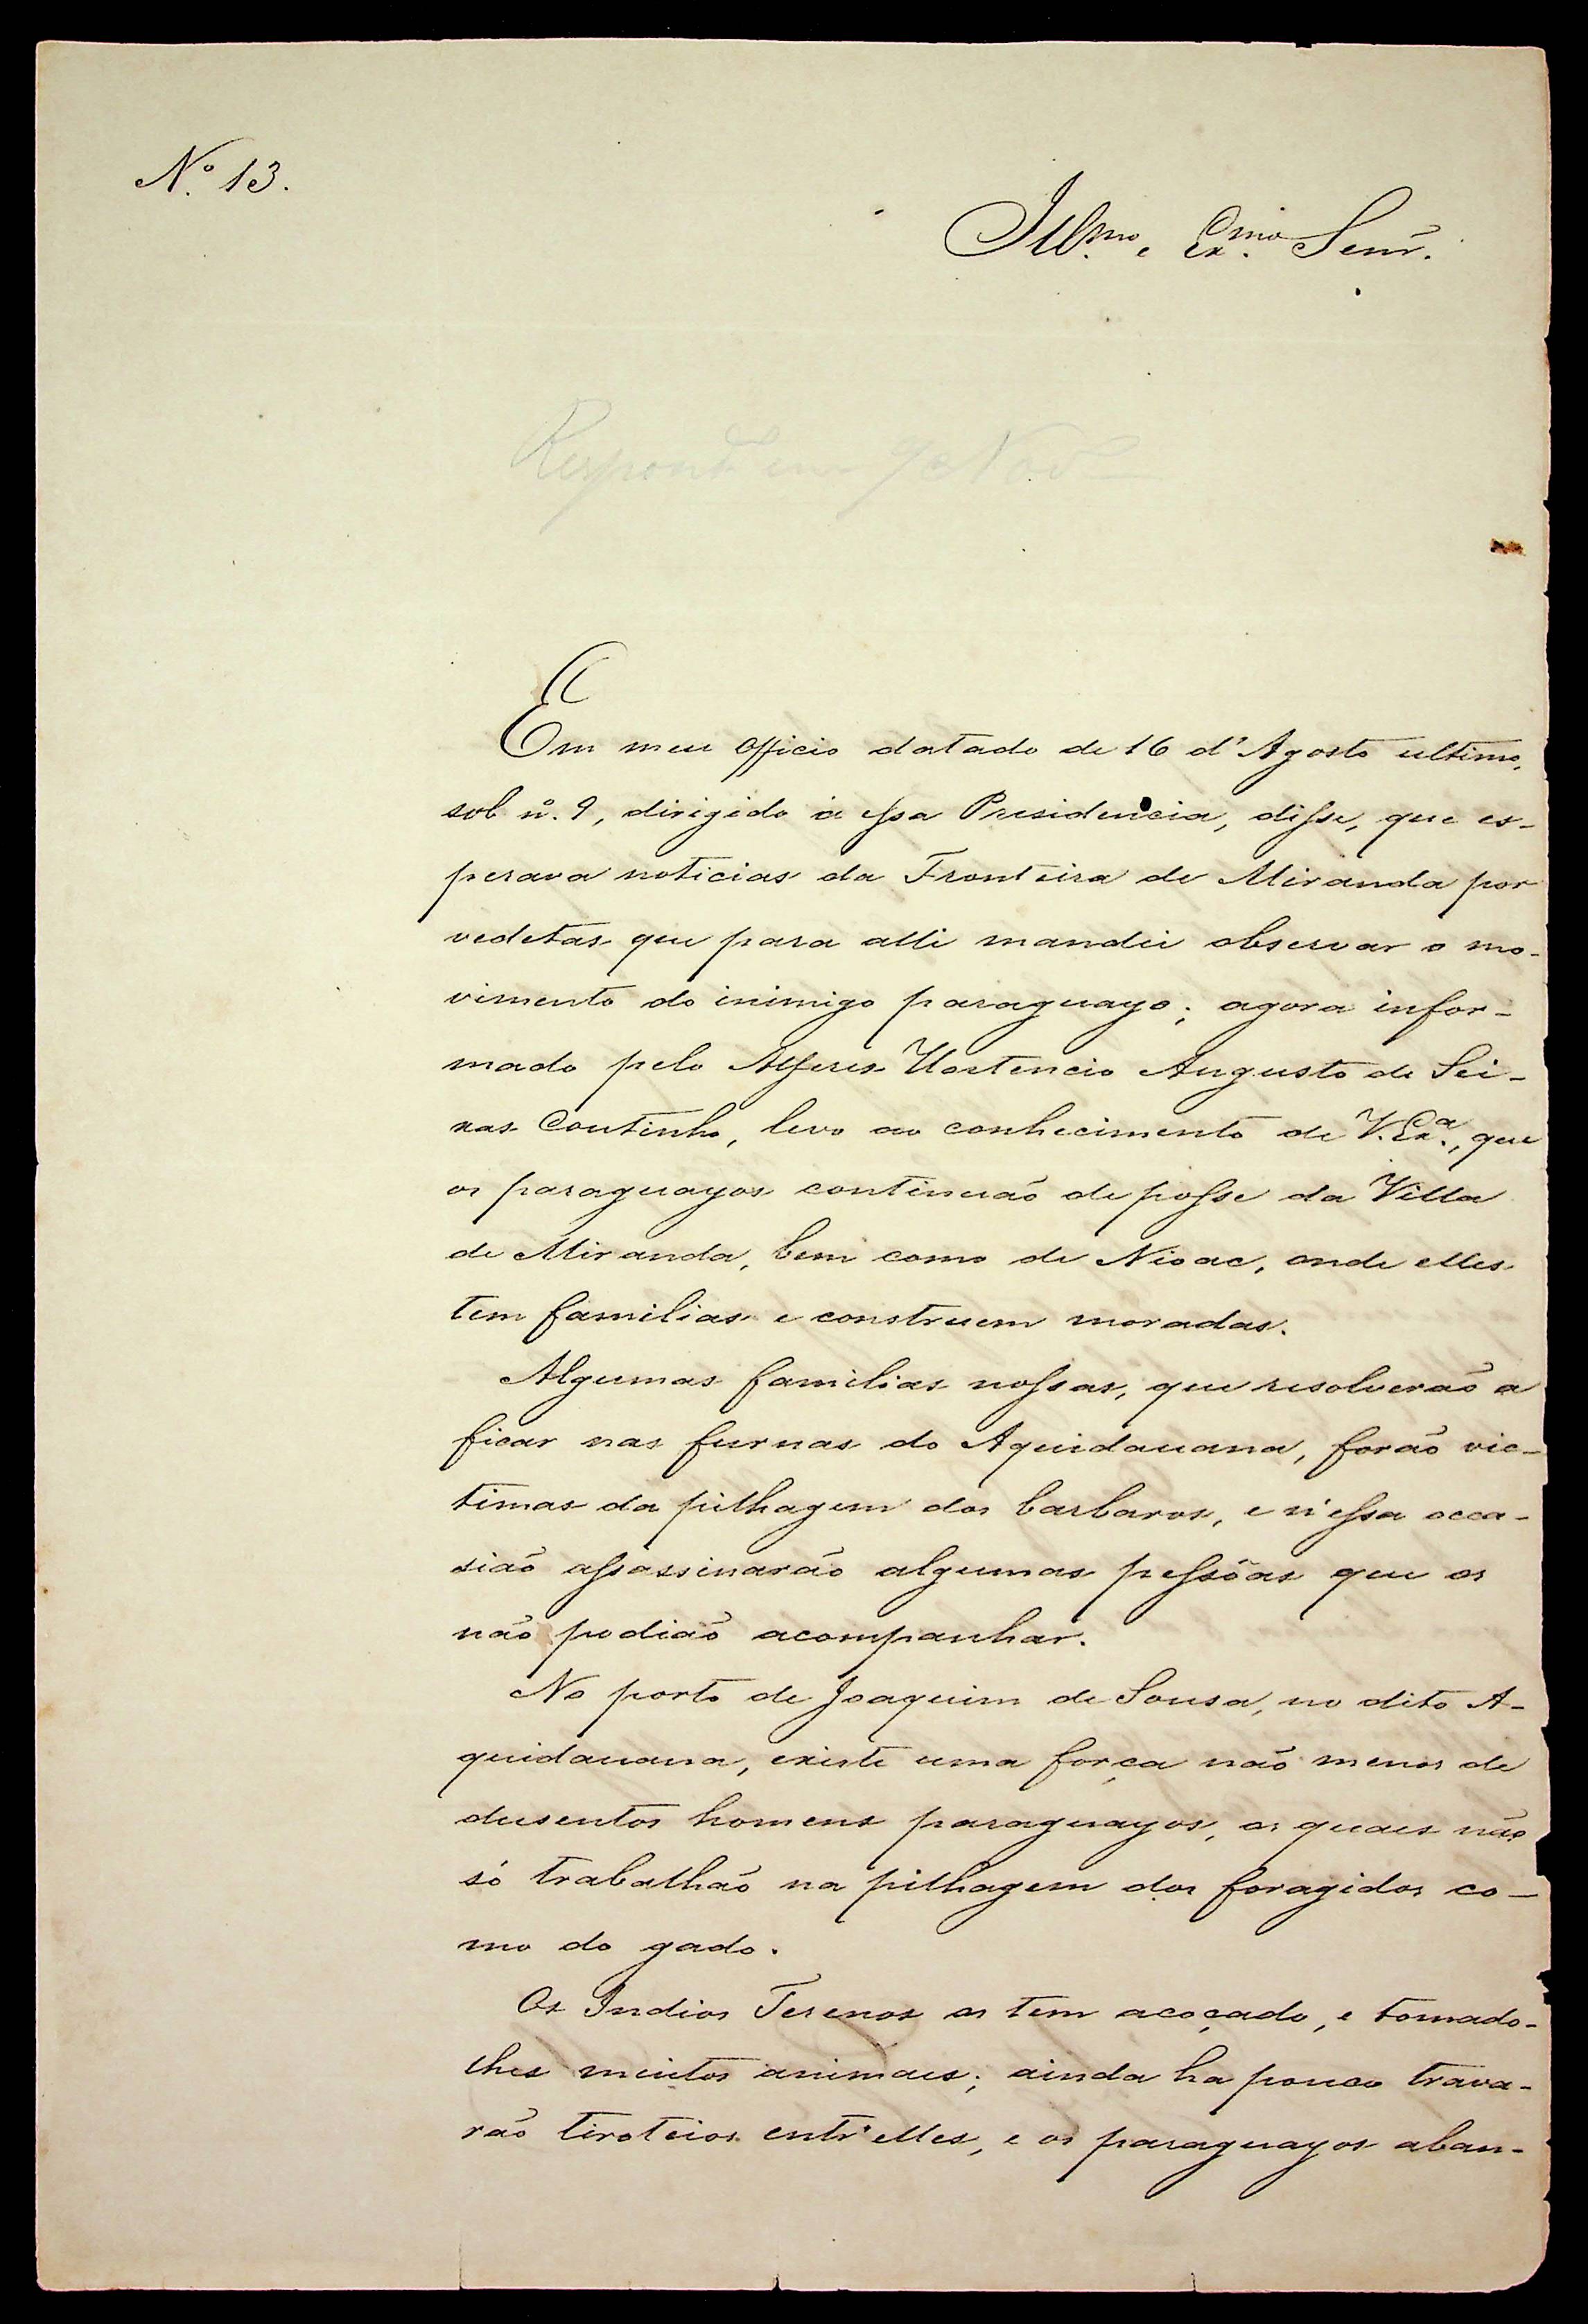 Nº 13.
Illmo. e Exmo. Senr.
Respond. em 9 Nov.
Em meu officio datado de 16 d'Agosto ultimo,
sob nº. 9, dirigido á essa Presidencia, disse, que es-
perava noticias da Fronteira de Miranda por
vedetas que para alli mandei observar o mo-
vimento do inimigo paraguayo; agora infor-
mado pelo Alferes Hortencio Augusto de Sei-
xas Coutinho, levo ao conhecimento de V. Exª., que
os paraguayos continuão de posse da Villa
de Miranda, bem como de Nioac, onde elles
tem familias e construem moradas.
Algumas familias nossas, que resolverão a
ficar nas furnas do Aquidauana, forão vic-
timas da pilhagem dos barbaros, e n'essa occa-
sião assassinarão algumas pessôas que os
não podião acompanhar.
No porto de Joaquim de Sousa, no dito A-
quidauana, existe uma força não menos de
dusentos homens paraguayos, os quaes não
só trabalhão na pilhagem dos foragidos co-
mo do gado.
Os Indios Terenos os tem acoçado, e tomado-
lhes muitos animaes; ainda ha pouco trava-
rão tiroteios entr'elles, e os paraguayos aban-